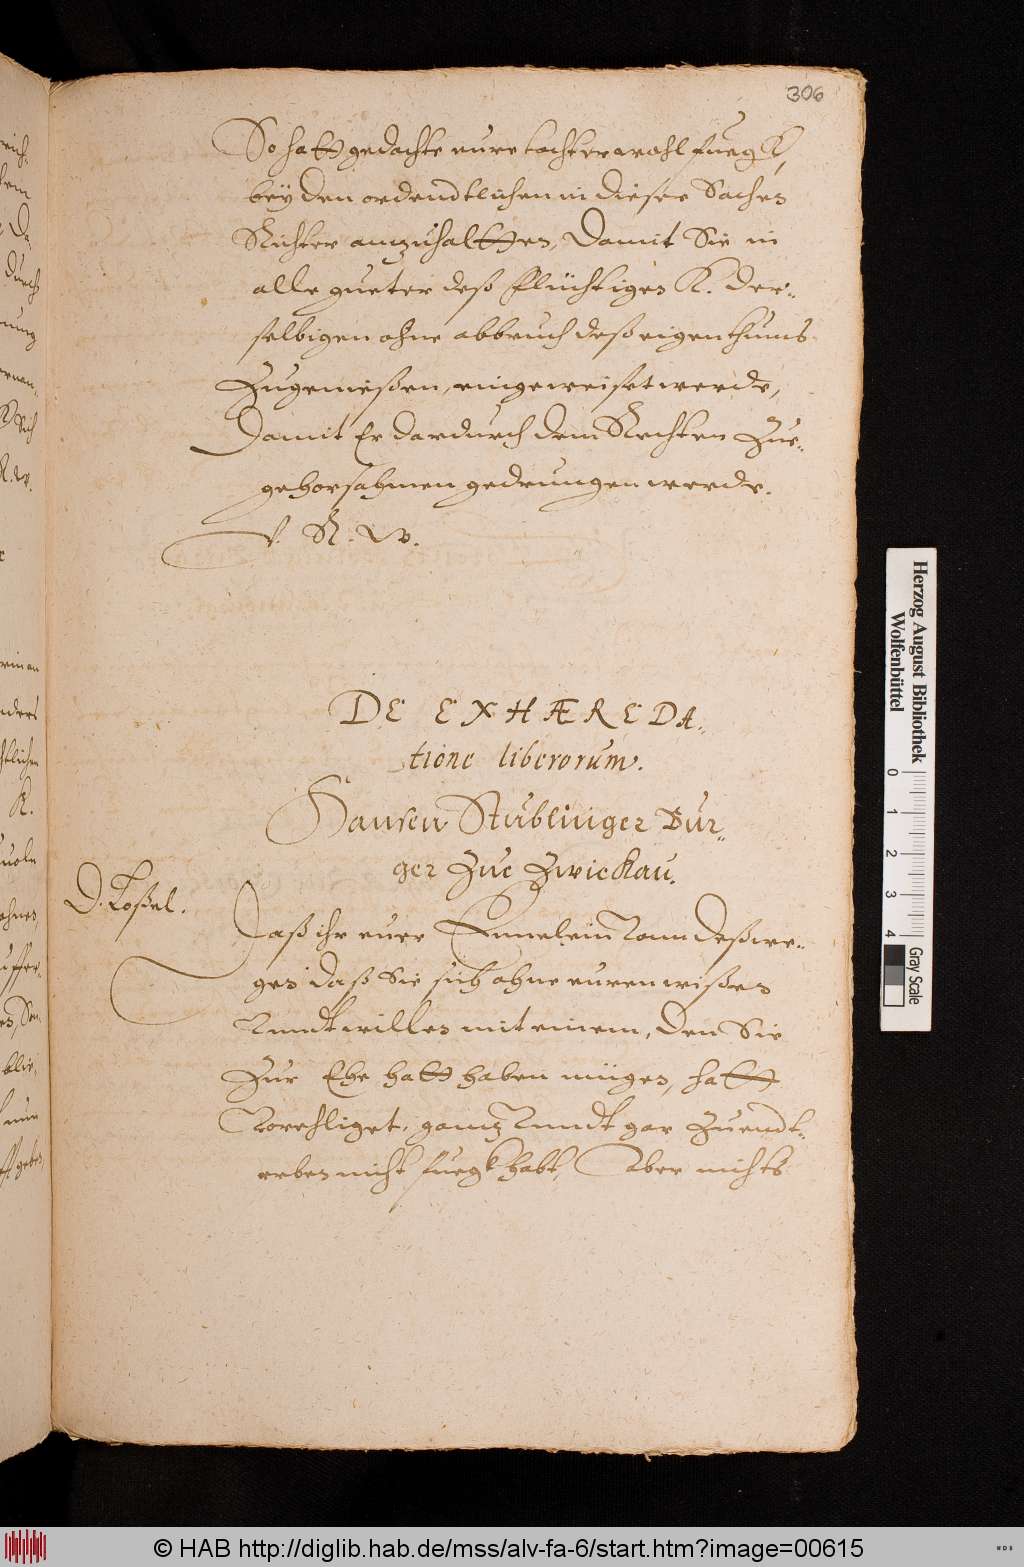 306
So hatt gedachte eure tochter wohl fueg K,
bey den ordendtlichen in dieser Sachen
Richter anzuhaltten, Damit Sie in
alle gueter deß flüchtigen K. der„
selbigen ohne abbruch deß eigenthums
Zugenießen, eingeweiset werde,
Damit Er dardurch dem Rechten Zue„
gehorsahmen gedrungen werde.
V. R. W.
DE EXHÆREDA„
tione liberorum.
Hansen Stüblinger Bur„
ger Zue Zwickau.
D. Roßel.
Daß ihr euer Ennelein Vonn deßwe„
gen daß Sie sich ohne euren wißen
Vundt willen mit einem, den Sie
Zur Ehe hatt haben mügen, hatt
Vorehliget, gantz Vundt gar Zuendt„
erben nicht fuegk habt, Aber nichts
Herzog August Bibliothek
Wolfenbüttel
0 1 2 3 4
Gray Scale
© HAB http://diglib.hab.de/mss/alv-fa-6/start.htm?image=00615